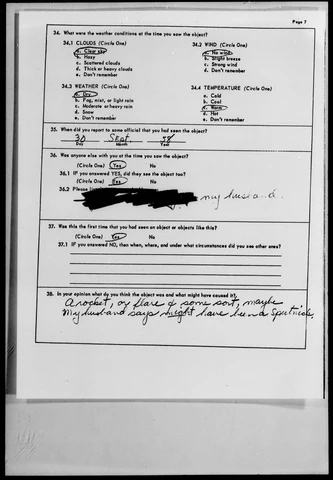 Page 7
34. What were the weather conditions at the time you saw the object?
34.1 CLOUDS (Circle One)
a. Clear sky
b. Hazy
c. Scattered clouds
d. Thick or heavy clouds
e. Don't remember
34.2 WIND (Circle One)
a. No wind
b. Slight breeze
c. Strong wind
d. Don't remember
34.3 WEATHER (Circle One)
a. Dry
b. Fog, mist, or light rain
c. Moderate or heavy rain
d. Snow
e. Don't remember
34.4 TEMPERATURE (Circle One)
a. Cold
b. Cool
c. Warm
d. Hot
e. Don't remember
35. When did you report to some official that you had seen the object?
30 Sept 58
Day Month Year
36. Was anyone else with you at the time you saw the object?
(Circle One) Yes No
36.1 IF you answered YES, did they see the object too?
(Circle One) Yes No
36.2 Please
my husband.
37. Was this the first time that you had seen an object or objects like this?
(Circle One) Yes No
37.1 IF you answered NO, then when, where, and under what circumstances did you see other ones?
38. In your opinion what do you think the object was and what might have caused it?
A rocket, or flare of some sort, maybe
My husband says might have been a Sputnick.